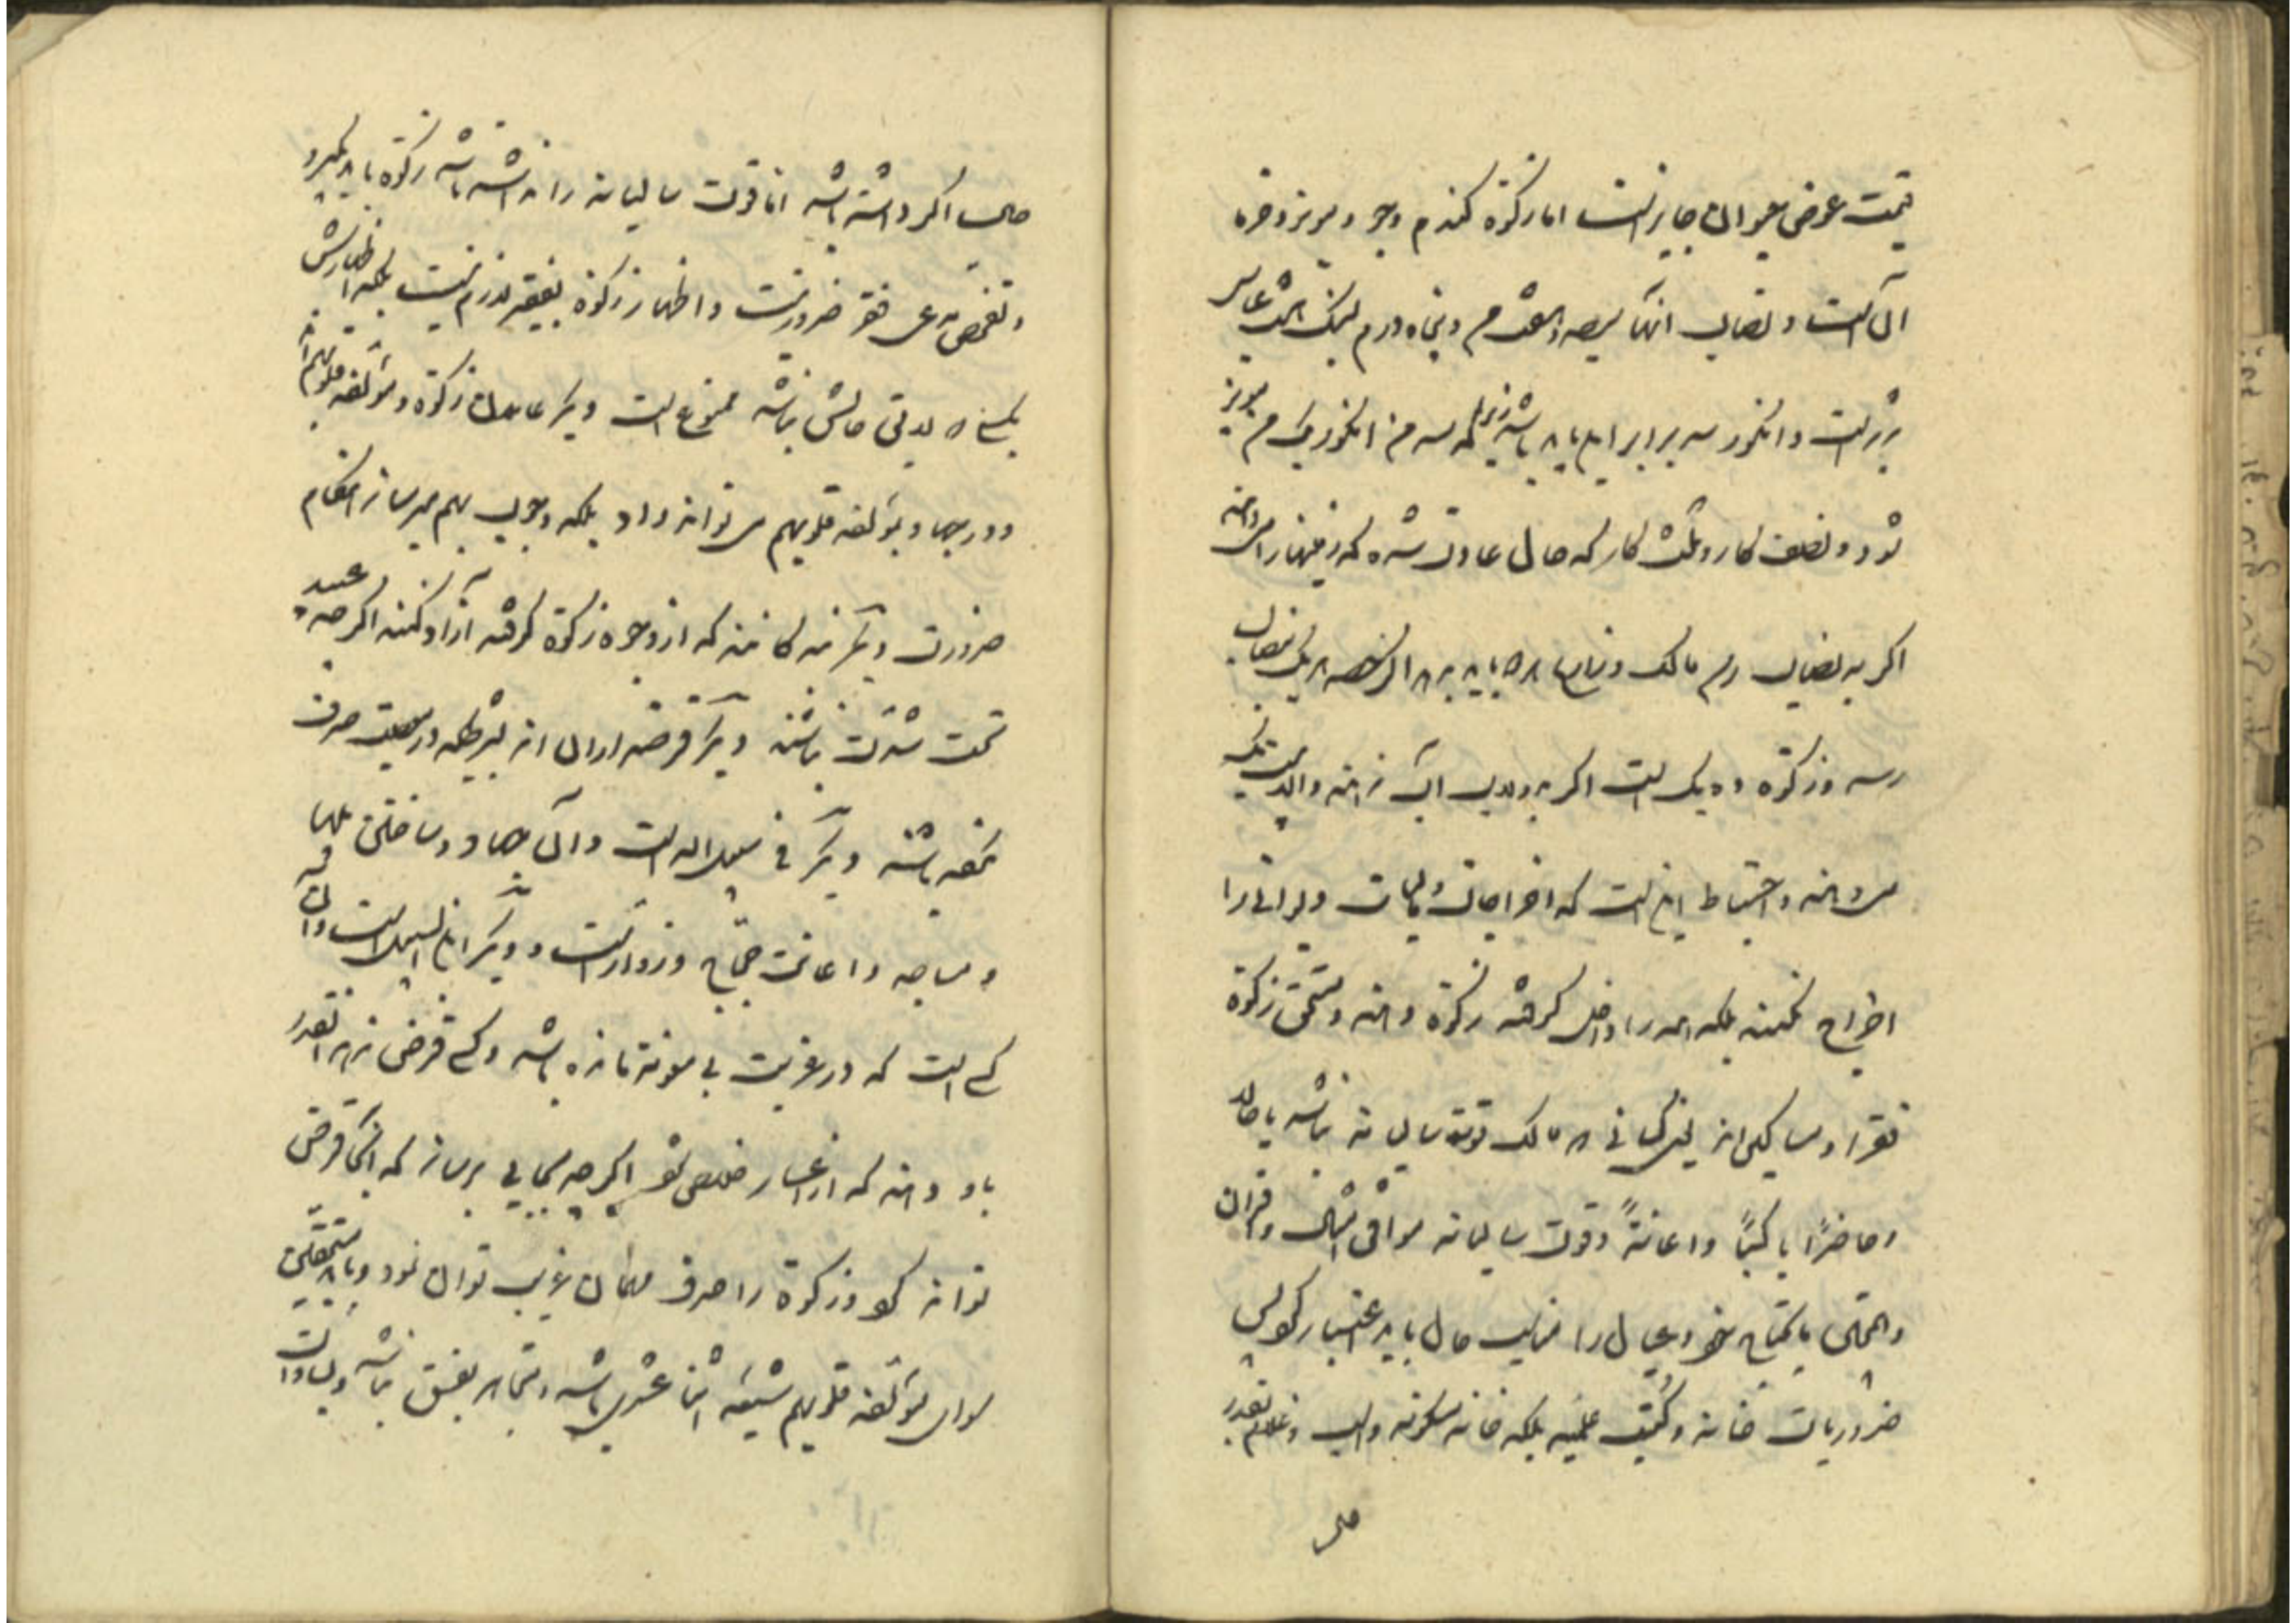 قیمت عوض حیوان جایز است اما زکوة گندم و جو و مویز و خرما
آن است و نصاب آنها سیصد و هفت من و پنجاه درم بسنگ شاه عباس
تبریز است و انگور سه برابر این باید باشد زیرا که سه من انگور یک من مویز
شود و نصف کار و ثلث کار که حال عادت شده که بزمینها را می دهند
اگر به نصاب رسد مالک و زارع باید بدهد هر یک نصاب
رسد و زکوة ده یک است اگر به دولاب آب ندهند و الا بیست یک
می دهند و احتیاط این است که اخراجات و مالیات دیوانی را
اخراج نکنند بلکه همه را داخل گرفته زکوة دهند و مستحق زکوة
فقرا و مساکین اند یعنی کسانی که مالک قوت سالیانه نباشد یا حالا
و حاضرا یا کسبا و اعانة و قوت سالیانه موافق امثال و اقران
و ما یحتاج خود و عیال را مناسب حال باید اعتبار کرد پس
ضروریات خانه و کتب علمیه بلکه خانه مسکونه و اسب و غلام بقدر
حال
حال اگر داشته باشد اما قوت سالیانه را نداشته باشد زکوة باید بگیرد
و تفحص از فقر ضرور نیست و اظهار زکوة بفقیر لازم نیست بلکه اظهارش
بکسی که لایق حالش نباشد ممنوع است دیگر عاملان زکوة و مؤلفه قلوبهم اند
و در جهاد بمؤلفه قلوبهم می تواند داد بلکه وجوب بهم میرساند هنگام
ضرورت دیگر بنده گانند که از وجوه زکوة گرفته آزاد کنند اگر چه عبید
تحت شدت نباشند دیگر قرضداران اند بشرطی که در معصیت صرف
نکرده باشند دیگر فی سبیل الله است و آن جهاد و ساختن پلها
و مساجد و اعانت حجاج و زوار است و دیگر ابن السبیل است و آن
کسی است که در غربت بی مونه مانده باشد و کسی قرض ندهد آنقدر
باو دهند که از اعسار خلاص شود اگر چه بجایی برساند که آنجا قرض
تواند کرد و زکوة را صرف مهمان غریب توان نمود و باید مستحقین
سوای مؤلفه قلوبهم شیعه اثنا عشری باشد و متجاهر بفسق نباشد و سادات